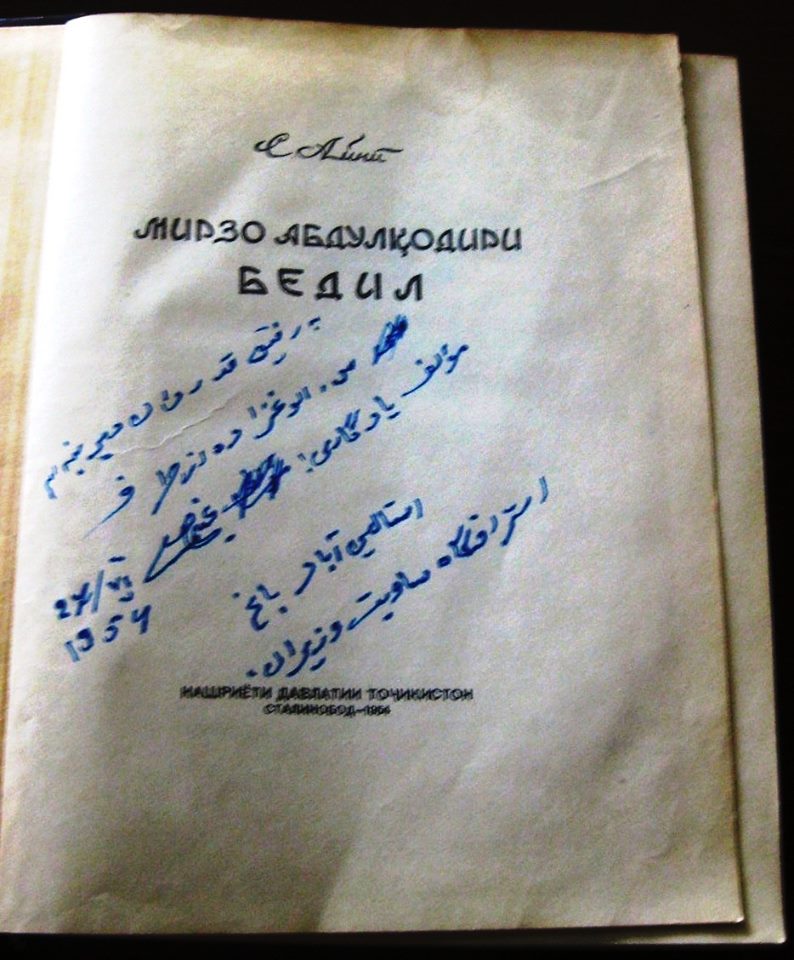 С Айнӣ
МИРЗО АБДУЛҚОДИРИ
БЕДИЛ
به رفیق قدردان دیرینه‌ام
س. الوغ‌زاده از طرف
مؤلف یادگاری!
عینی
27/VI
1954
استالین‌آباد باغ
استراحتگاه ساویت وزیران.
НАШРИЁТИ ДАВЛАТИИ ТОҶИКИСТОН
СТАЛИНОБОД—1954